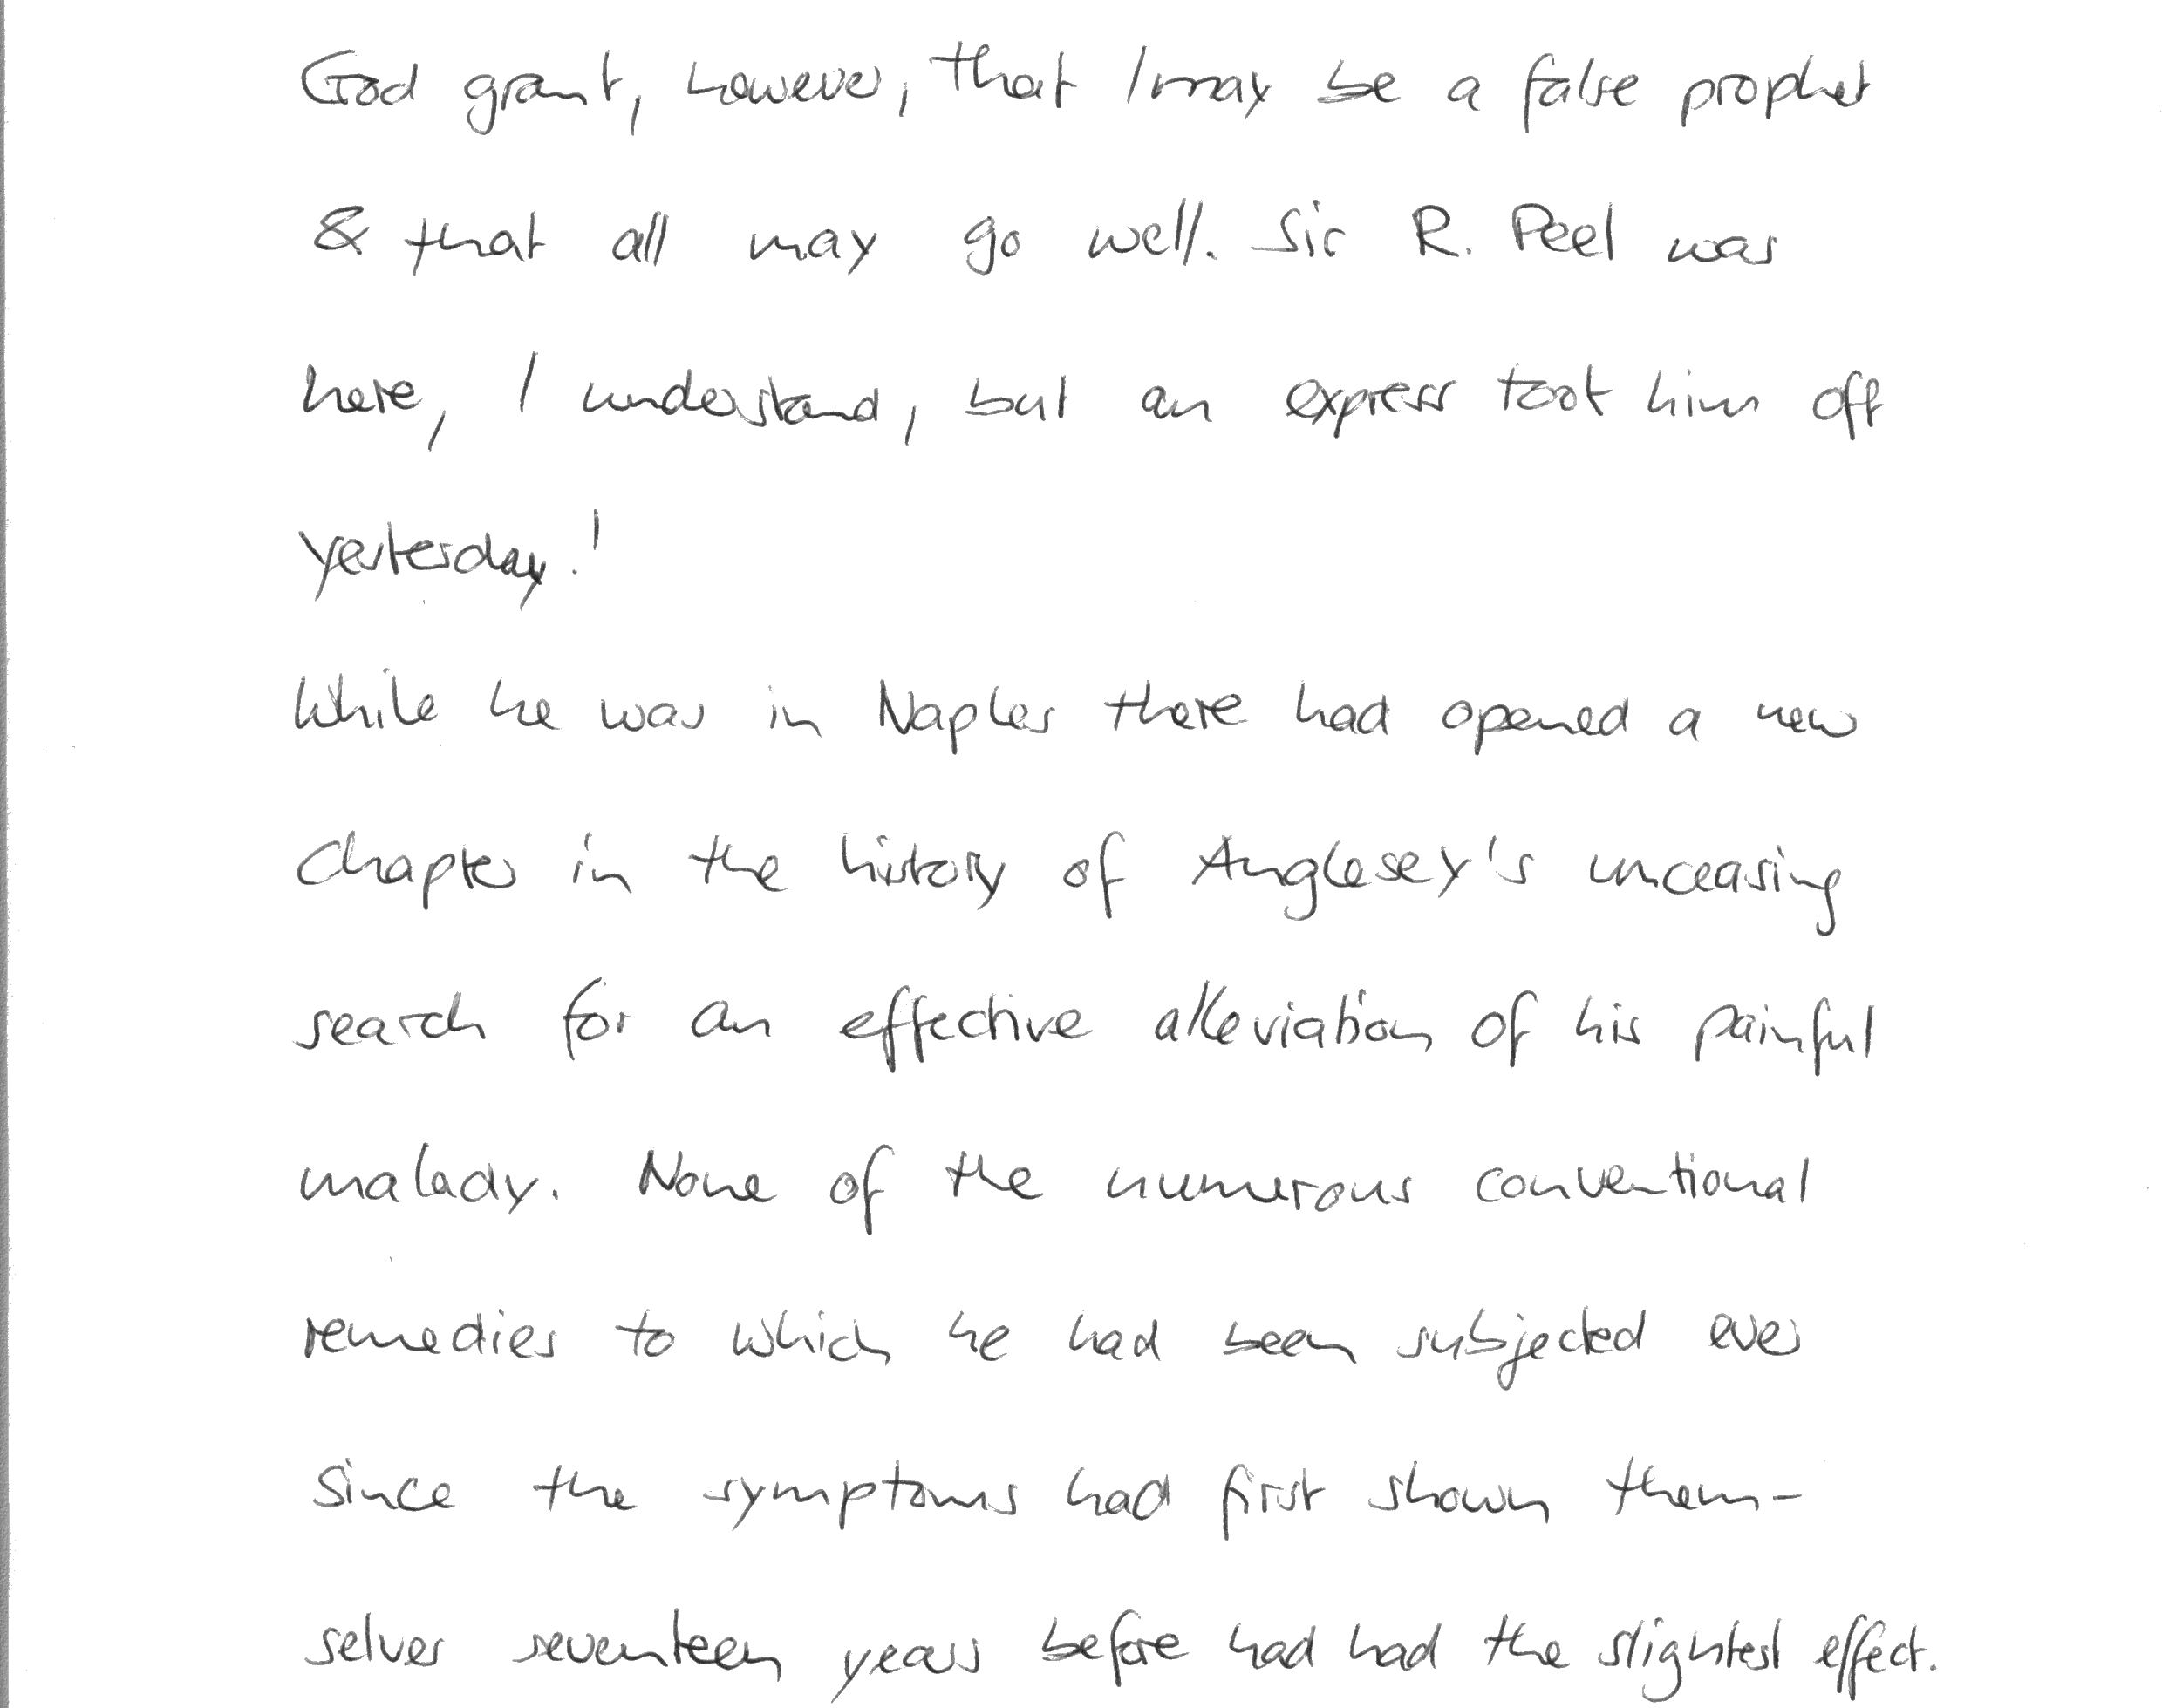 God grant, however, that I may be a false prophet
& that all may go well. Sir R. Peel was
here, I understand, but an express took him off
yesterday!
While he was in Naples there had opened a new
Chapter in the history of Anglesey's unceasing
search for an effective alleviation of his painful
malady. None of the numerous conventional
remedies to which he had been subjected ever
since the symptoms had first shown them-
selves seventeen years before had had the slightest effect.